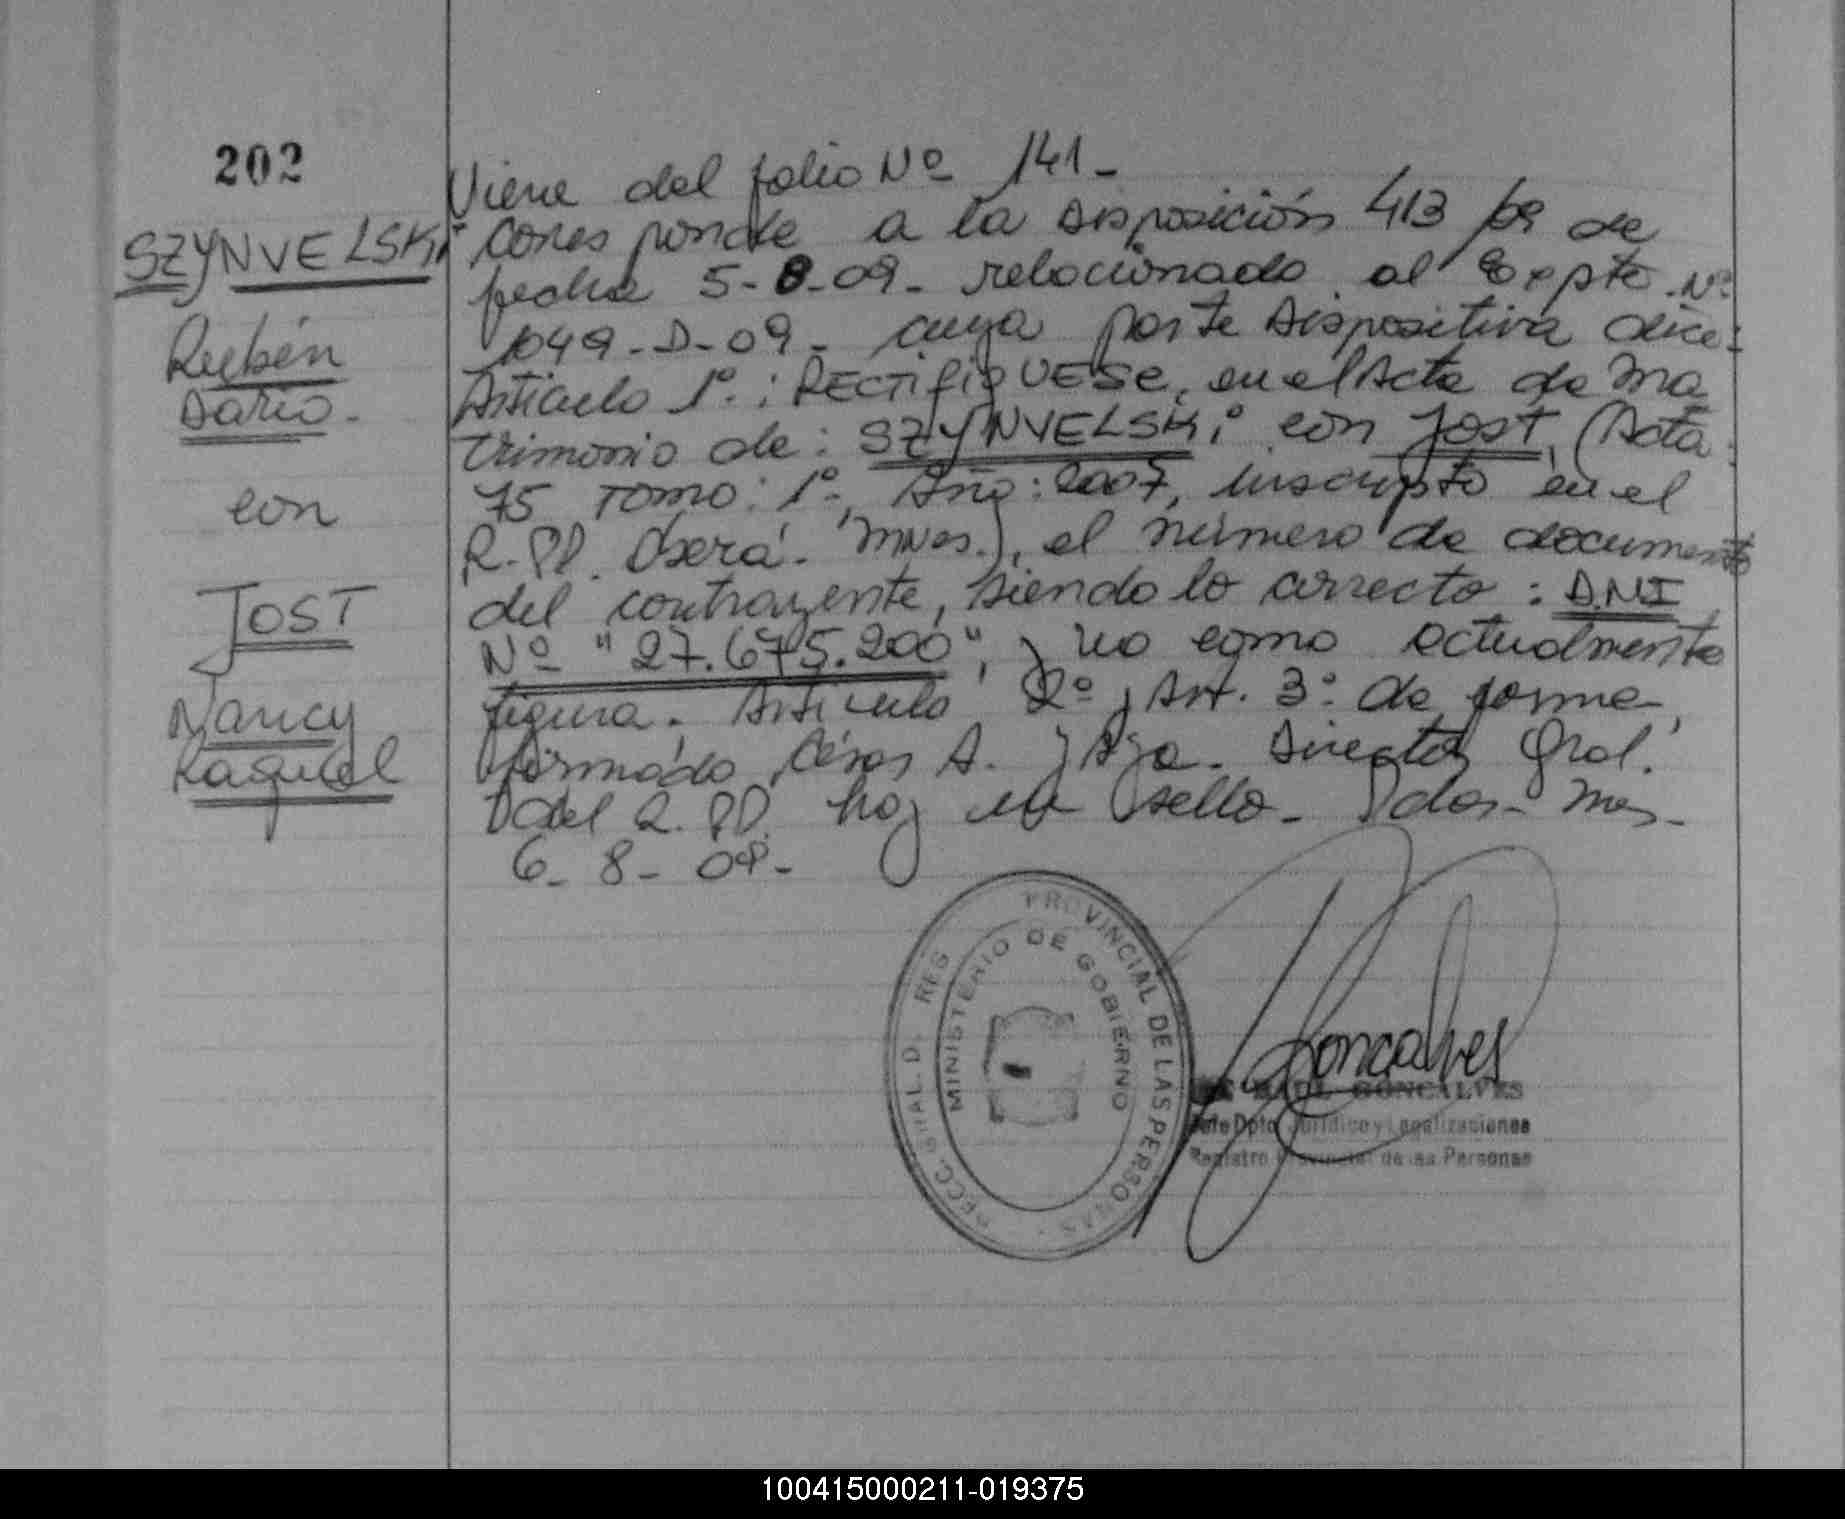 202
SZYNVELSKI
Rubén
Darío.
con
JOST
Nancy
Raquel
Viene del folio Nº 141-
Corresponde a la Disposición 413/09 de
fecha 5-8-09- relacionado al Expte. Nº
1049-D-09- cuya parte Dispositiva dice:
Artículo 1º: RECTIFIQUESE, en el Acta de Ma
trimonio de: SZYNVELSKi con JOST, (Acta:
75 TOMO: 1º, Año: 2007, inscripto en el
R.PP. Oberá. Mnes.), el número de documento
del contrayente, siendo lo correcto: D.N.I
Nº "27.675.200", y no como actualmente
figura. Artículo 2º y Art. 3º de forma,
firmado César A. Director Gral.
del R.PP. hoy un sello- Pdas- Mnes-
6-8-09-
PROVINCIAL DE LAS PERSONAS
MINISTERIO DE GOBIERNO
Goncalves
RAUL GONCALVES
Jefe Dpto Jurídico y Legalizaciones
Registro Provincial de las Personas
100415000211-019375